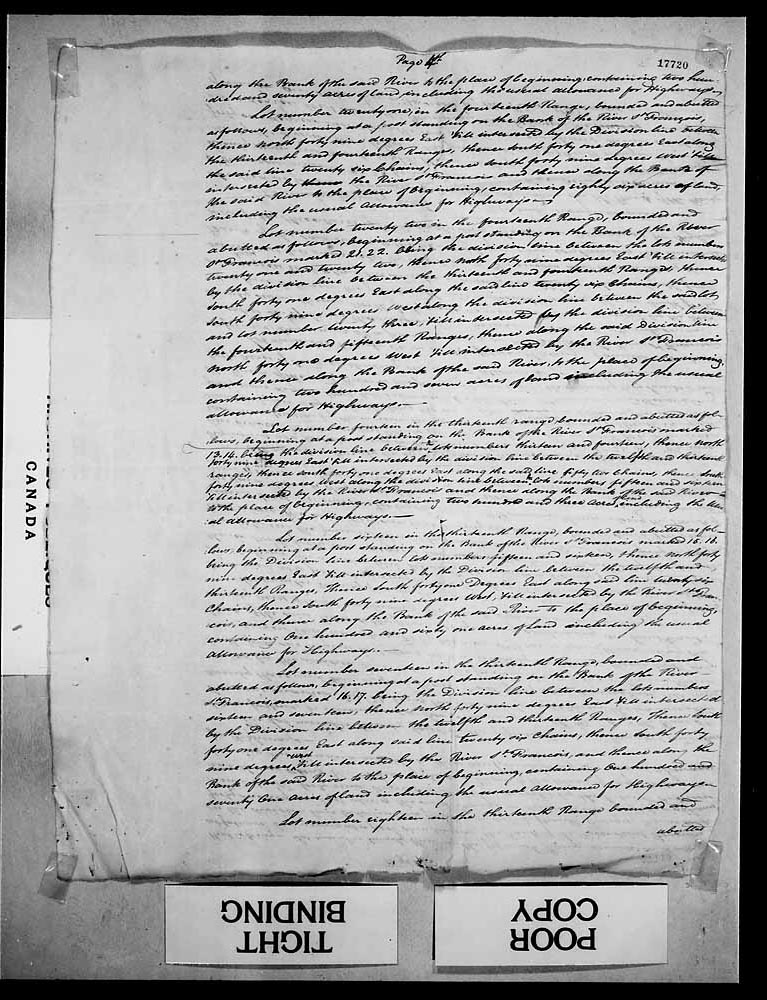 Page 4th
17720
along the Bank of the said River to the place of beginning containing two hun-
dred and seventy acres of land, including the usual allowance for Highways.
Lot number twenty one, in the fourteenth Range, bounded and abutted
as follows, beginning at a post standing on the Bank of the River St François,
thence North forty nine degrees East 'till intersected by the Division line between
the thirteenth and fourteenth Ranges, thence south forty one degrees East along
the said line twenty six Chains, thence south forty nine degrees West 'till
intersected by the River St Francois and thence along the Bank of
the said River to the place of beginning, containing eighty six acres of land,
including the usual allowance for Highways.
Lot number twenty two in the fourteenth Range, bounded and
abutted as follows, beginning at a post standing on the Bank of the River
St Francois marked 21.22. being the division line between the lots numbers
twenty one and twenty two, thence North forty nine degrees East 'till intersected
by the division line between the thirteenth and fourteenth Ranges, thence
South forty one degrees East along the said line twenty six Chains, thence
South forty nine degrees West along the division line between the said lot
and lot number twenty three, 'till intersected by the division line between
the fourteenth and fifteenth Ranges, thence along the said Division line
North forty one degrees West 'till intersected by the River St Francois
and thence along the Bank of the said River, to the place of beginning,
containing two hundred and seven acres of land including the usual
allowance for Highways.
Lot number fourteen in the thirteenth range bounded and abutted as fol-
lows, beginning at a post standing on the Bank of the River St Francois marked
13.14. being the division line between lots numbers thirteen and fourteen, thence North
forty nine degrees East 'till intersected by the division line between the twelfth and thirteenth
ranges, thence south forty one degrees East along the said line fifty two Chains, thence South
forty nine degrees West along the division line between lots numbers fifteen and sixteen
'till intersected by the River St Francois and thence along the Bank of the said River
to the place of beginning, containing two hundred and three acres, including the usu-
al allowance for Highways.
Lot number sixteen in the thirteenth Range, bounded and abutted as fol-
lows, beginning at a post standing on the Bank of the River St Francois marked 15.16.
being the Division line between lots numbers fifteen and sixteen, thence North forty
nine degrees East 'till intersected by the Division line between the twelfth and
thirteenth Ranges, thence South forty one Degrees East along said line twenty six
Chains, thence South forty nine degrees West, 'till intersected by the River St Fran-
cois, and thence along the Bank of the said River to the place of beginning,
containing One hundred and sixty one acres of land including the usual
allowance for Highways.
Lot number seventeen in the thirteenth Range, bounded and
abutted as follows, beginning at a post standing on the Bank of the River
St Francois, marked 16.17. being the Division line between the lots numbers
sixteen and seventeen, thence North forty nine degrees East 'till intersected
by the Division line between the twelfth and thirteenth Ranges, thence South
forty one degrees East along said line twenty six Chains, thence South forty
nine degrees West 'till intersected by the River St Francois, and thence along the
Bank of the said River to the place of beginning, containing One hundred and
seventy One acres of land including the usual allowance for Highways.
Lot number eighteen in the thirteenth Range bounded and
abutted
CANADA
TIGHT
BINDING
POOR
COPY